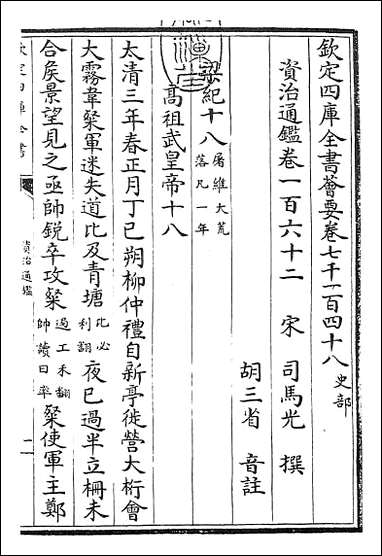 欽定四庫全書薈要卷七千一百四十八史部
資治通鑑卷一百六十二　宋　司馬光　撰
胡三省　音註
梁紀十八屠維大荒落凡一年
高祖武皇帝十八
太清三年春正月丁巳朔柳仲禮自新亭徙營大桁會
大霧韋粲軍迷失道比及青塘比必利翻夜已過半立柵未
合矦景望見之亟帥銳卒攻粲過工禾翻帥讀曰率粲使軍主鄭
欽定四庫全書
資治通鑑